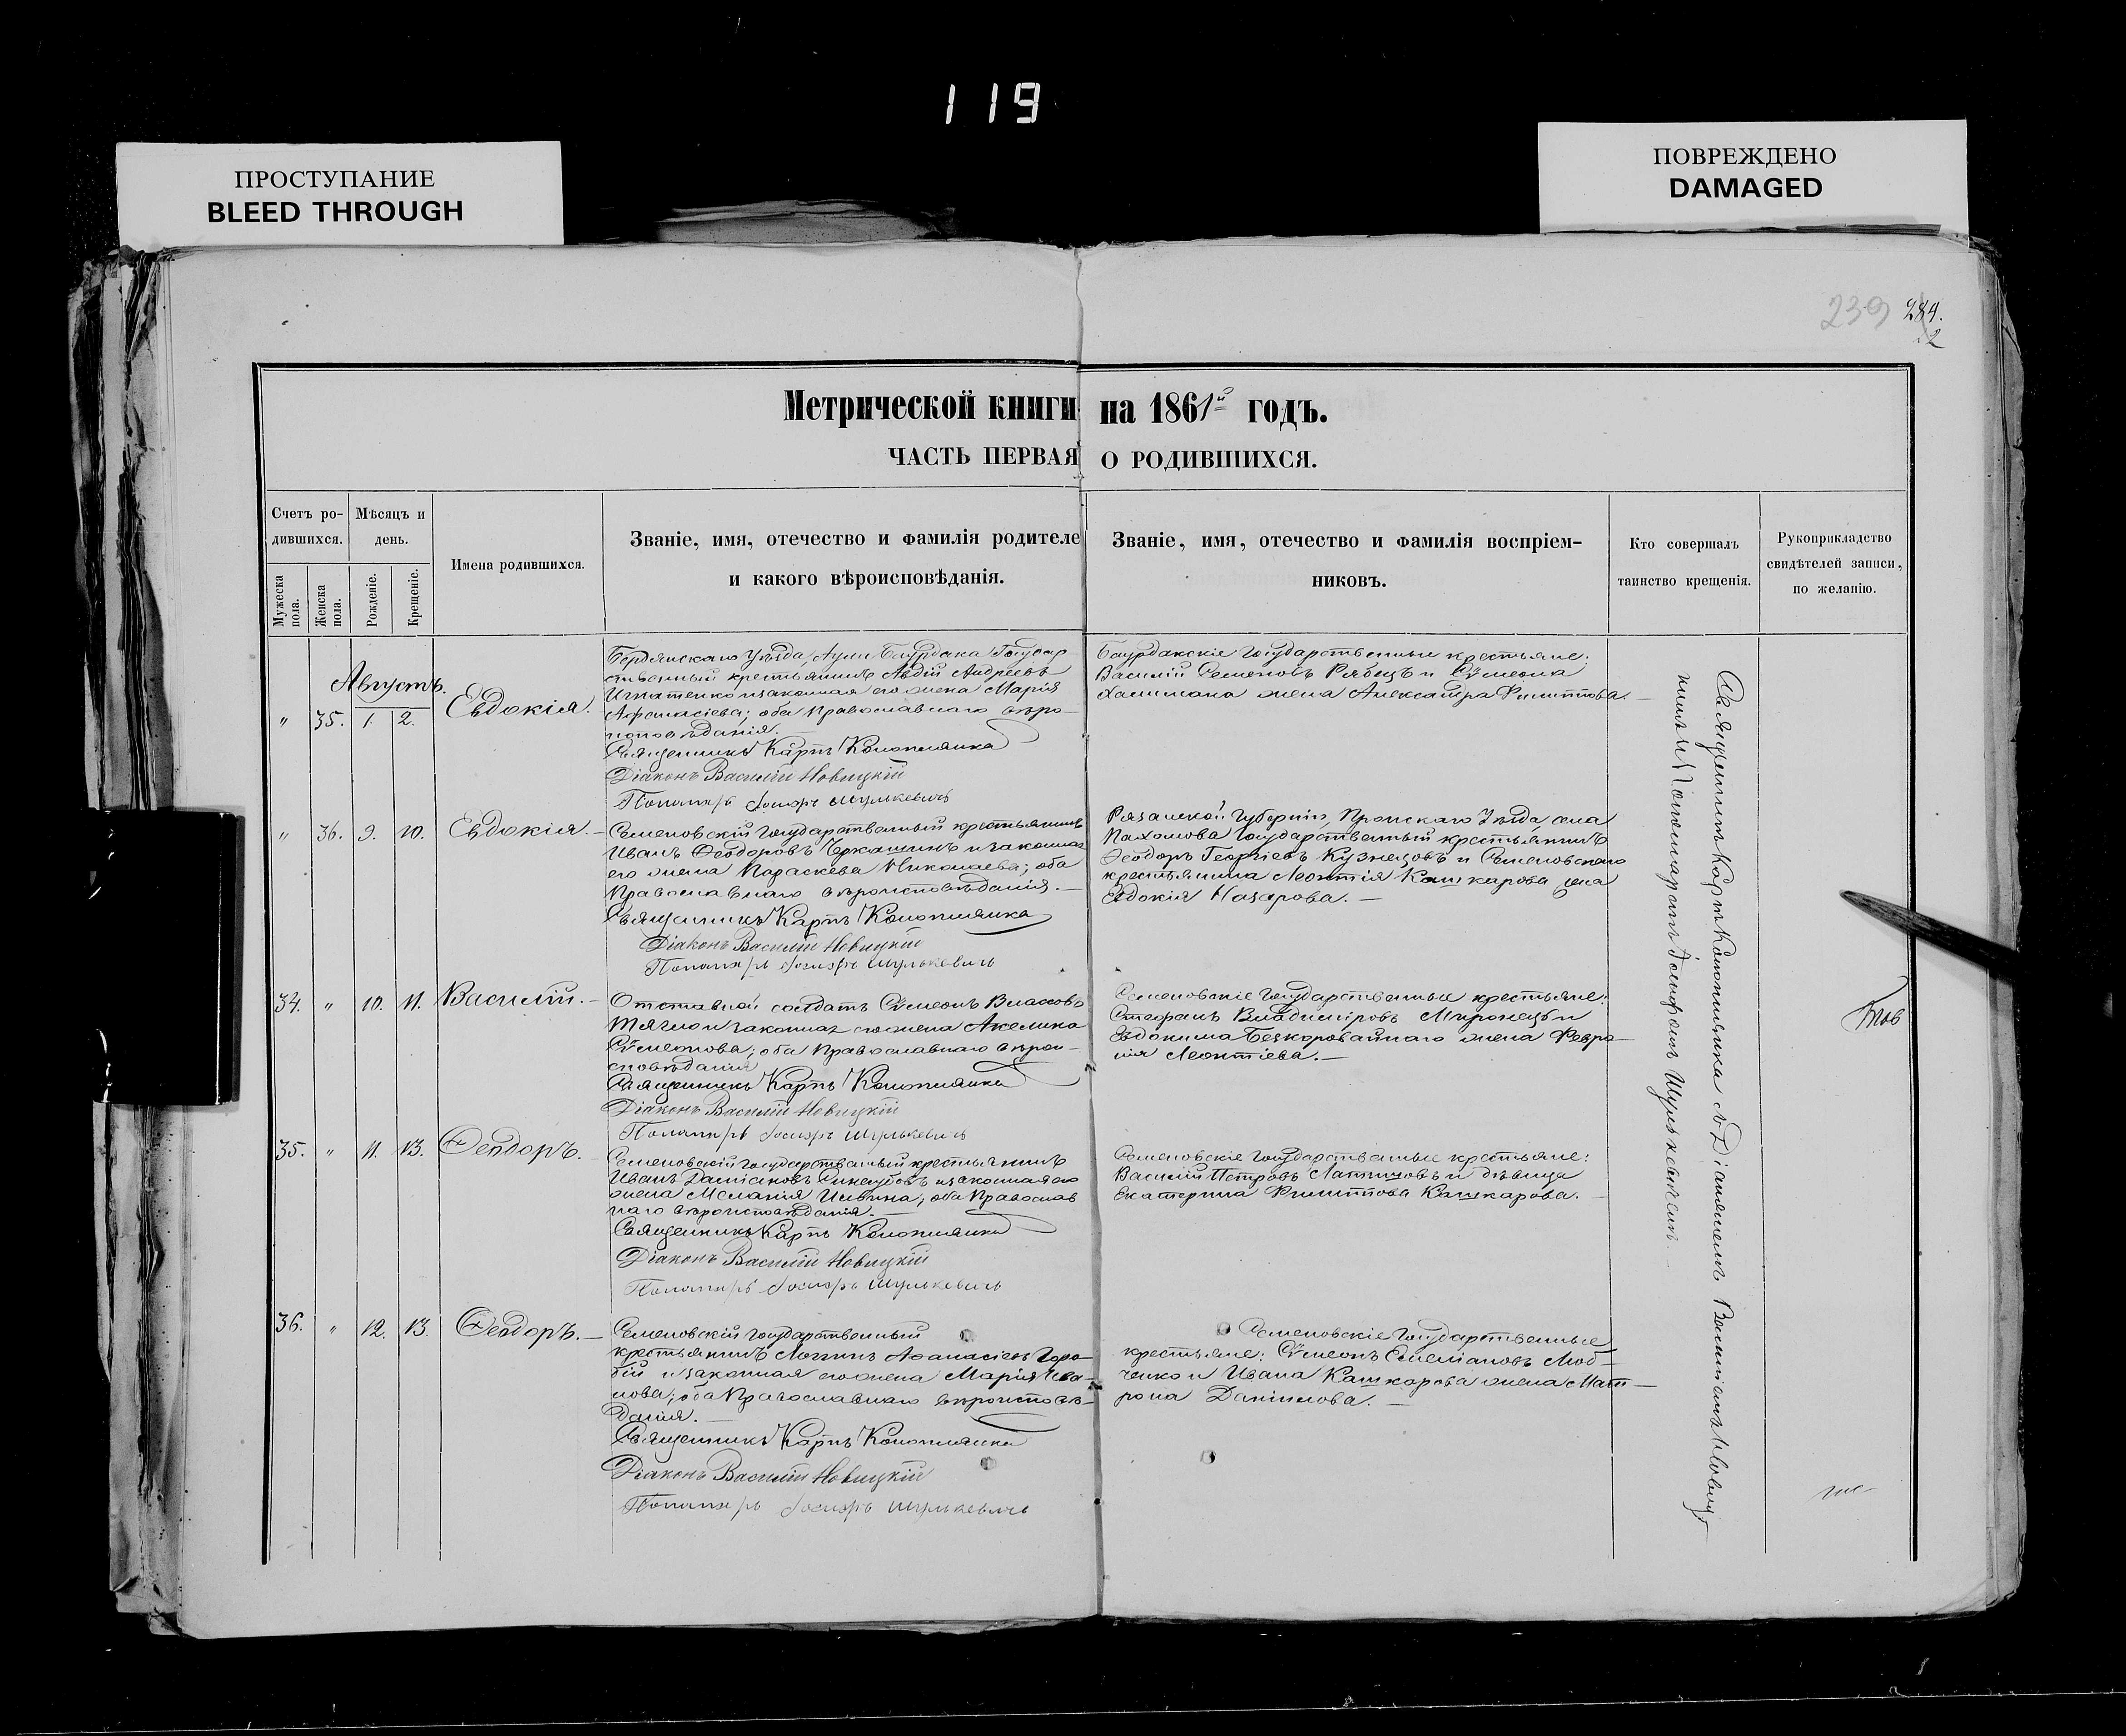 119
ПРОСТУПАНИЕ
BLEED THROUGH
ПОВРЕЖДЕНО
DAMAGED
239 284.
2
Метрической книги на 1861й годъ.
ЧАСТЬ ПЕРВАЯ О РОДИВШИХСЯ.
Счетъ ро-
дившихся.
Мужеска
пола.
Женска
пола.
Мѣсяцъ и
день.
Рожденіе.
Крещеніе.
Имена родившихся.
Званіе, имя, отечество и фамилія родителе
и какого вѣроисповѣданія.
Званіе, имя, отечество и фамилія воспріем-
никовъ.
Кто совершалъ
таинство крещенія.
Рукоприкладство
свидѣтелей записи,
по желанію.
Августъ.
" 35. 1. 2. Евдокія.
Бердянскаго уѣзда, Аула Баурдака Государ
ственный крестьянинъ Авдій Андреевъ
Игнатенко и законная его жена Марія
Афанасіева; оба Православнаго вѣро-
исповѣданія.
Священникъ Карпъ Коноплянка
Діаконъ Василій Новицкій
Пономарь Іосифъ Шулькевичъ
Баурдакскіе Государственные крестьяне:
Василій Семеновъ Рябецъ и Сѵмеона
жена Александра Филиппова.
" 36. 9. 10. Евдокія.
Семеновскій Государственный крестьянинъ
Иванъ Ѳеодоровъ Черкашинъ и законная
его жена Параскева Николаева; оба
Православнаго вѣроисповѣданія.
Священникъ Карпъ Коноплянка
Діаконъ Василій Новицкій
Пономарь Іосифъ Шулькевичъ
Рязанской Губерніи, Пронскаго Уѣзда, села
Пахомова Государственный крестьянинъ
Ѳеодоръ Георгіевъ Кузнецовъ и Семеновскаго
крестьянина Леонтія Кашкарова жена
Евдокія Назарова.
34. " 10. 11. Василій.
Отставной солдатъ Сѵмеонъ Власовъ
Тягло и законная его жена Акелина
Сѵмеонова; оба Православнаго вѣрои-
сповѣданія
Священникъ Карпъ Коноплянка
Діаконъ Василій Новицкій
Пономарь Іосифъ Шулькевичъ
Семеновскіе Государственные крестьяне:
Стефанъ Владиміровъ Миронецъ и
Евдокима Безкоровайнаго жена Февро-
нія Леонтіева.
35. " 11. 13. Ѳеодоръ.
Семеновскій Государственный крестьянинъ
Иванъ Даміановъ и законная его
жена Меланія Ильина; оба Православ
наго вѣроисповѣданія.
Священникъ Карпъ Коноплянка
Діаконъ Василій Новицкій
Пономарь Іосифъ Шулькевичъ
Семеновскіе Государственные крестьяне:
Василій Петровъ Латышовъ и дѣвица
Екатерина Филиппова Кашкарова.
36. " 12. 13. Ѳеодоръ.
Семеновскій Государственный
крестьянинъ Логгинъ Афанасіевъ Горо-
бій и законная его жена Марія Ива-
нова; оба Православнаго вѣроисповѣ-
данія.
Священникъ Карпъ Коноплянка
Діаконъ Василій Новицкій
Пономарь Іосифъ Шулькевичъ
Семеновскіе Государственные
крестьяне: Сѵмеонъ Емеліановъ Люб-
ченко и Ивана Кашкарова жена Мат-
рона Даніилова.
Священникъ Карпъ Коноплянка съ Діакономъ Василіемъ Новиц-
кимъ и Пономаремъ Іосифомъ Шулькевичемъ.